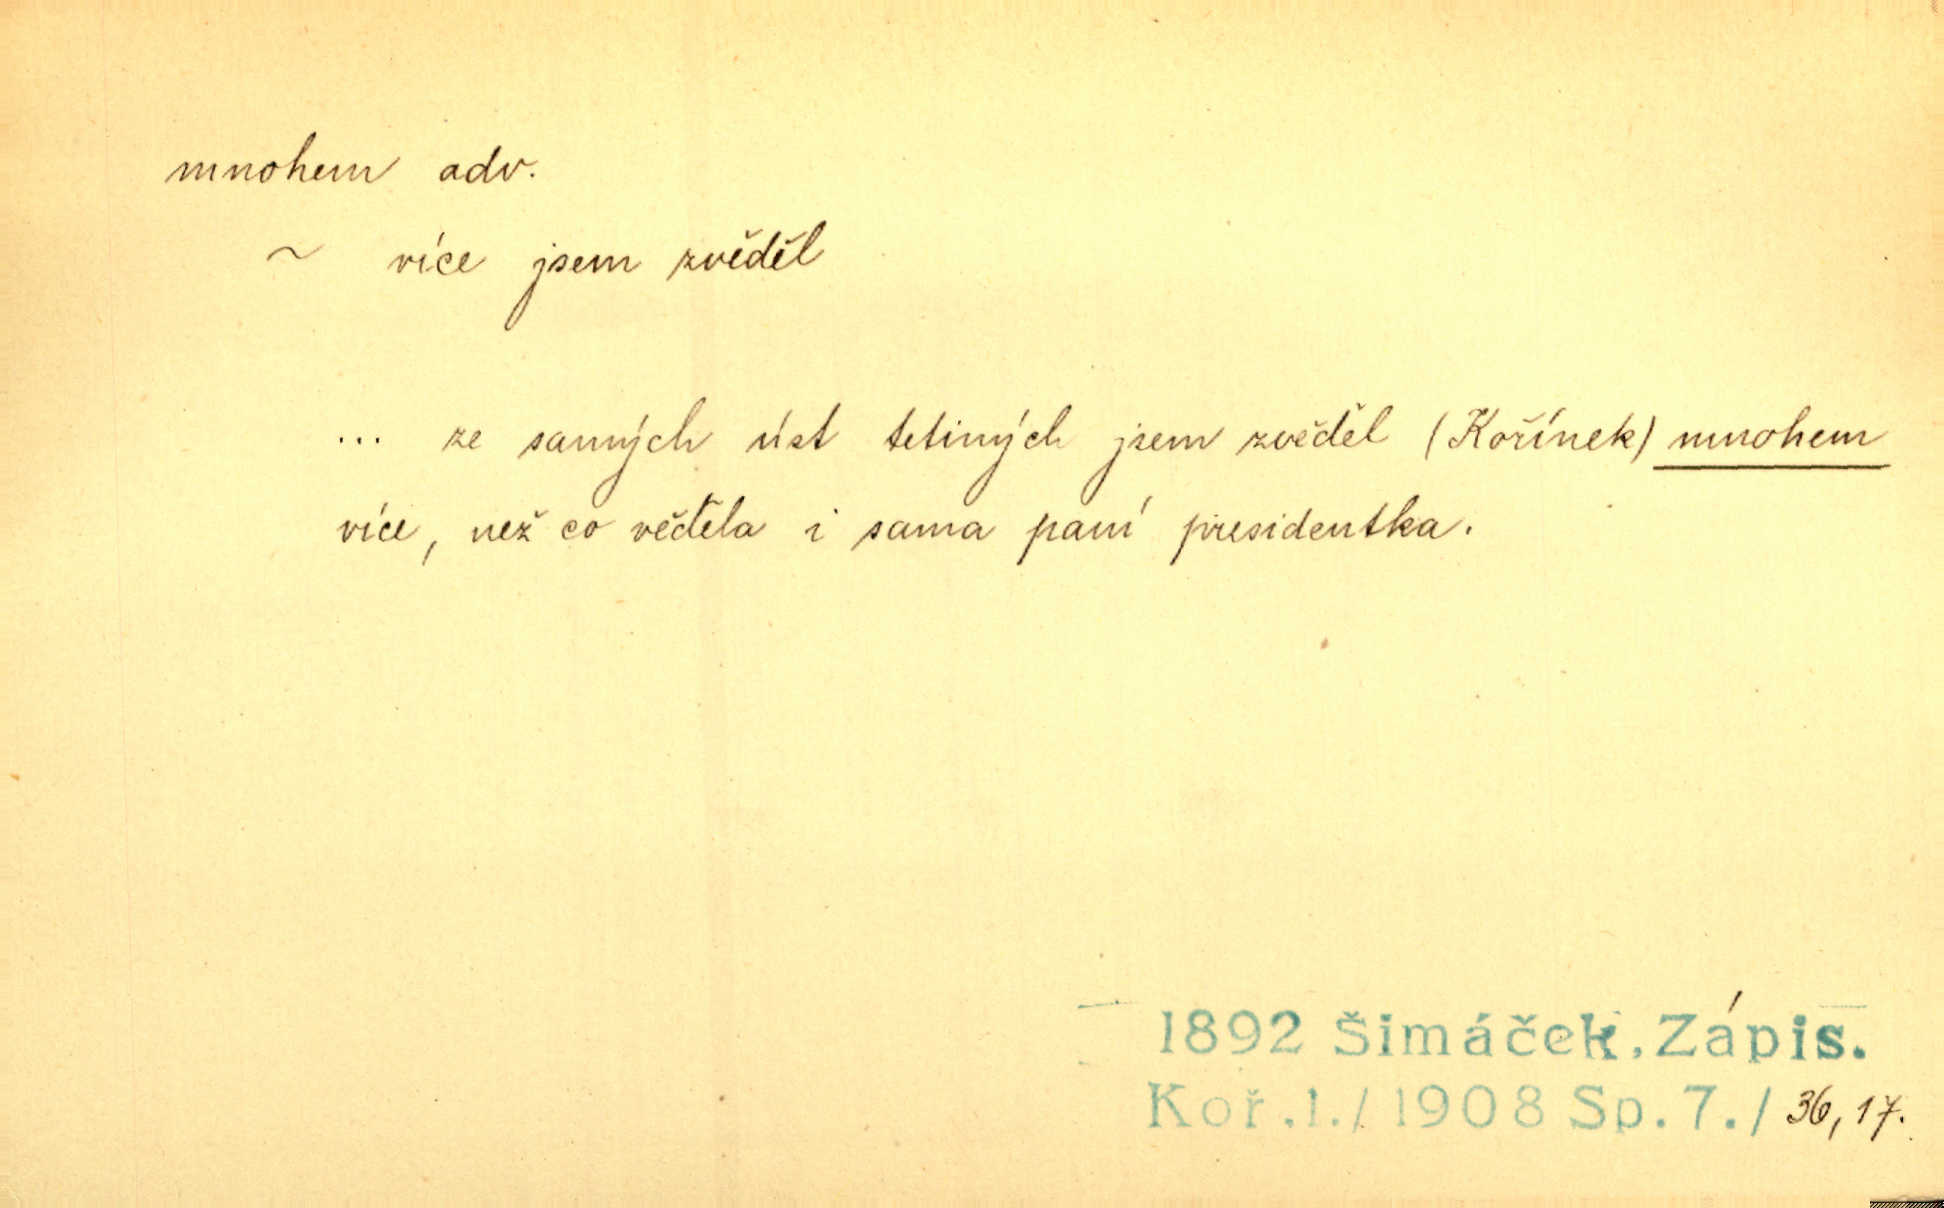 mnohem adv.
~ více jsem zvěděl
... ze samých úst tetiných jsem zvěděl (Kořínek) mnohem
více, než co věděla i sama paní presidentka.
1892 Šimáček, Zápis.
Koř.1./1908 Sp.7./ 36, 17.